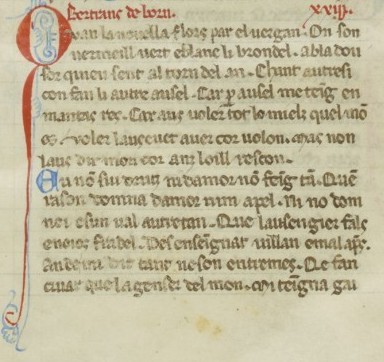 Bertrans de born. xxiij.
Qvan la nouella flors par el uergan. On son
uermeill uert e blanc li brondel. Ab la dou
sor qu ieu sent al torn del an. Chant autresi
con fan li autre ausel. Car per ausel me teig en
maintas res. Car aus uoler tot lo mielz quel mon
es. Voler l aus eu et auer cor uolon. Mas non
l aus dir mon cor anz loill rescon.
Eu non sui drutz ni d amor non feing tan. Quen
rason domna d amor nim apel. Ni no dom
nei e si un ual autretan. Que lausengier fals
enoios fradel. Desenseignat uillan e mal apres.
An de mi dit tant ne son entremes. Qe fan
cuiar que la genser del mon. Mi teigna gai